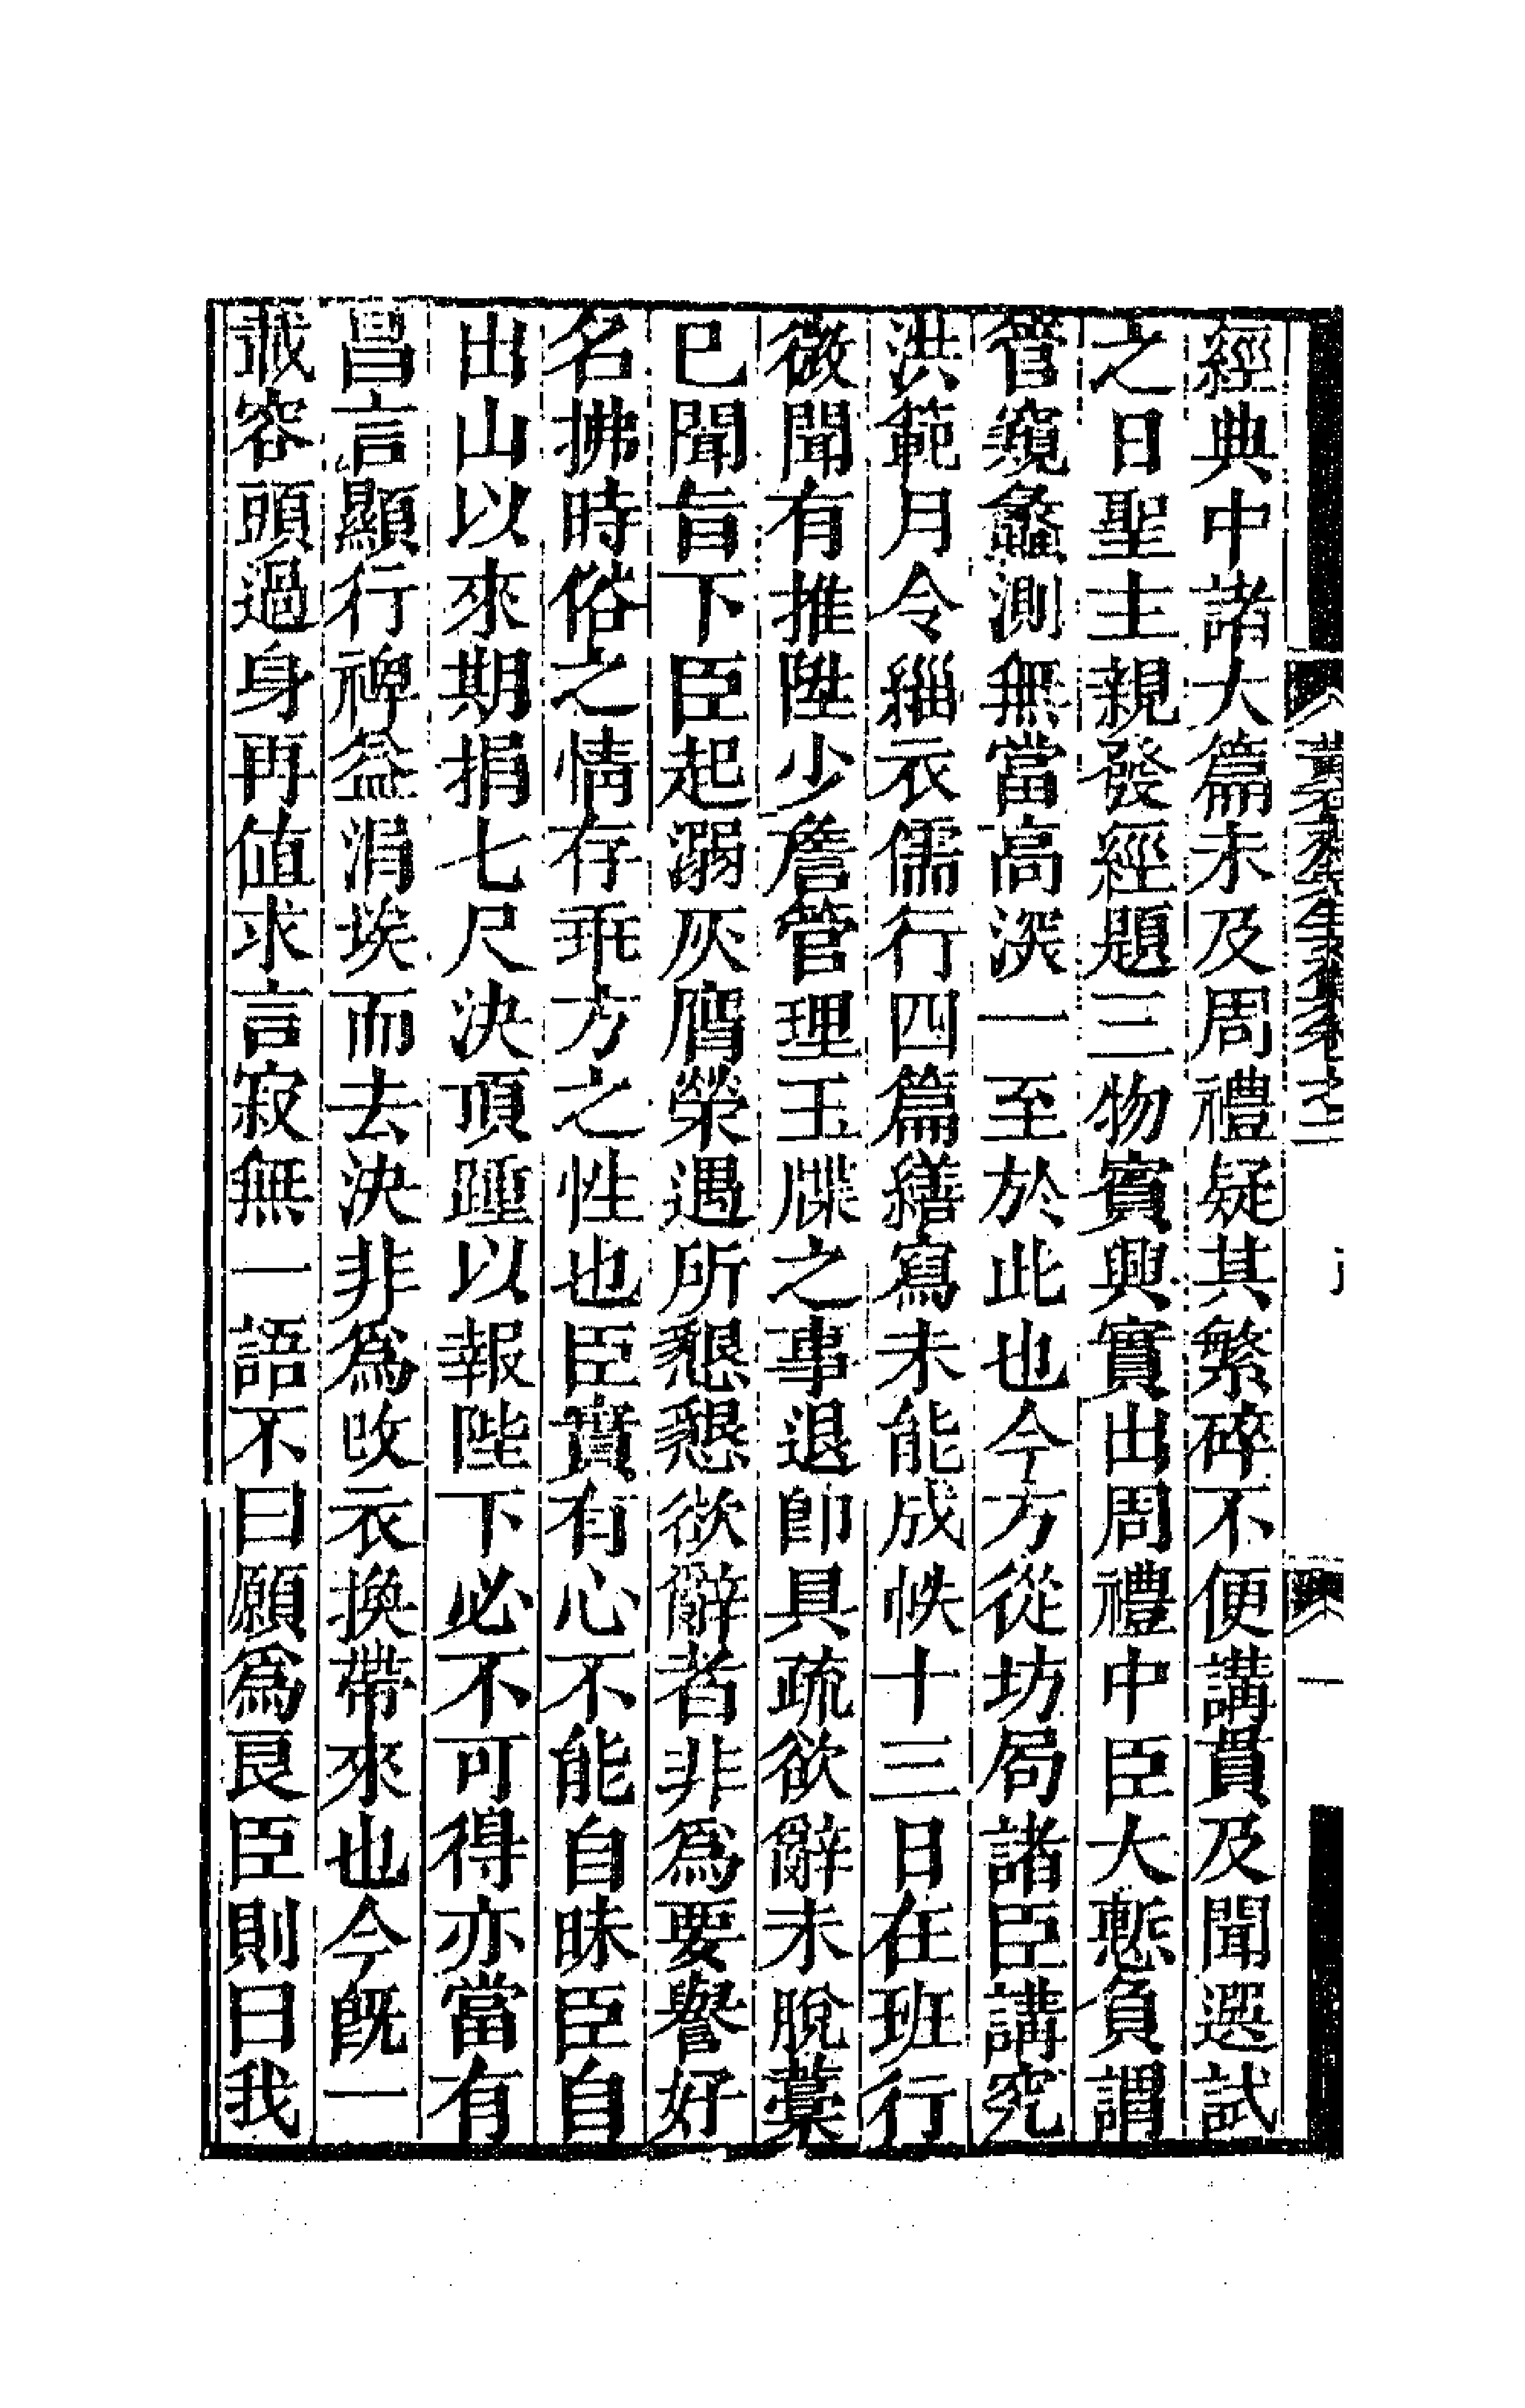 經典中諸大篇未及周禮疑其繁碎不便講貫及聞選試
之日聖主親發經題三物賓興實出周禮中臣大慙負謂
管窺蠡測無當高深一至於此也今方從坊局諸臣講究
洪範月令緇衣儒行四篇繕寫未能成帙十三日在班行
微聞有推陞少詹管理玉牒之事退卽具疏欲辭未脫藁
已聞旨下臣起溺灰膺榮遇所懇懇欲辭者非為要譽好
名拂時俗之情存乖方之性也臣實有心不能自昧臣自
出山以來期捐七尺決頂踵以報陛下必不可得亦當有
昌言顯行裨益涓埃而去決非為改衣換帶來也今既一
載容頭過身再值求言寂無一語不曰願為良臣則曰我